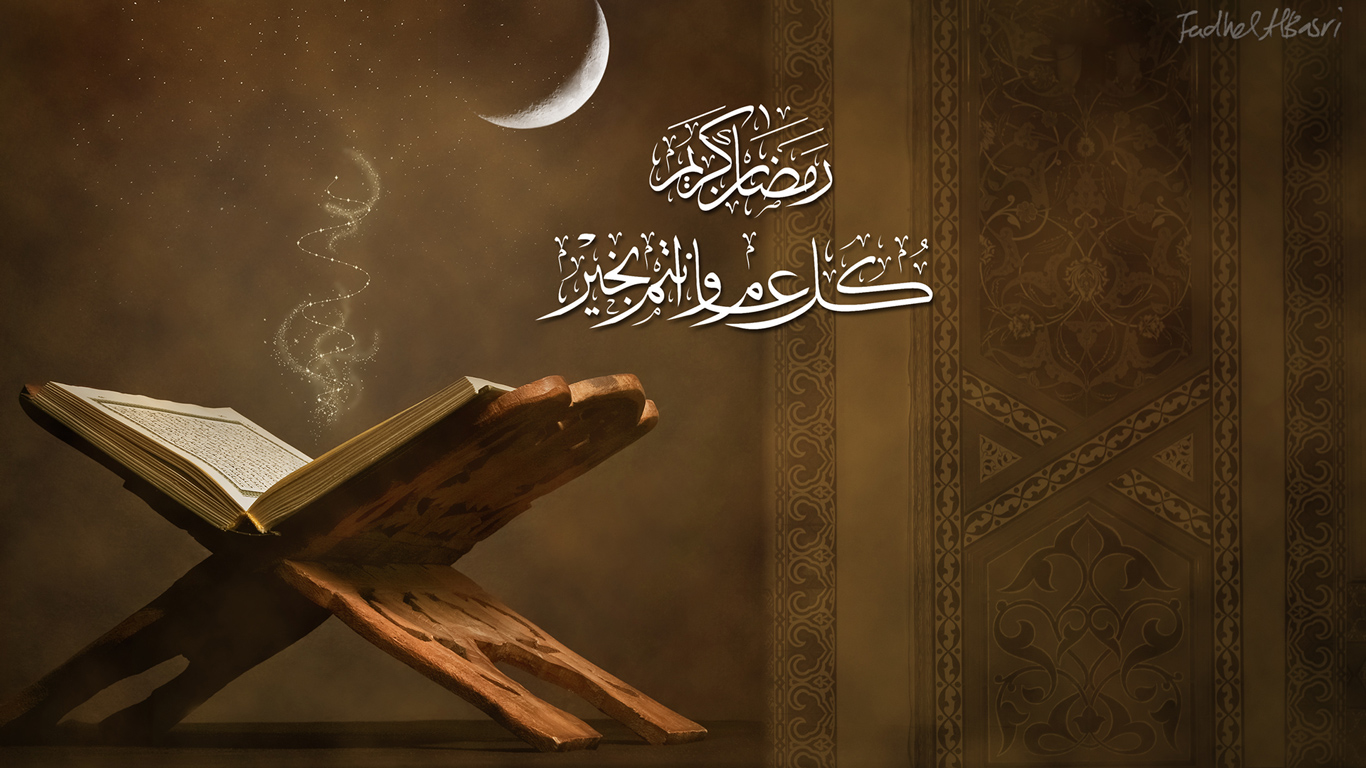 Fadhel AlBasri
رمضان كريم
كل عام وانتم بخير